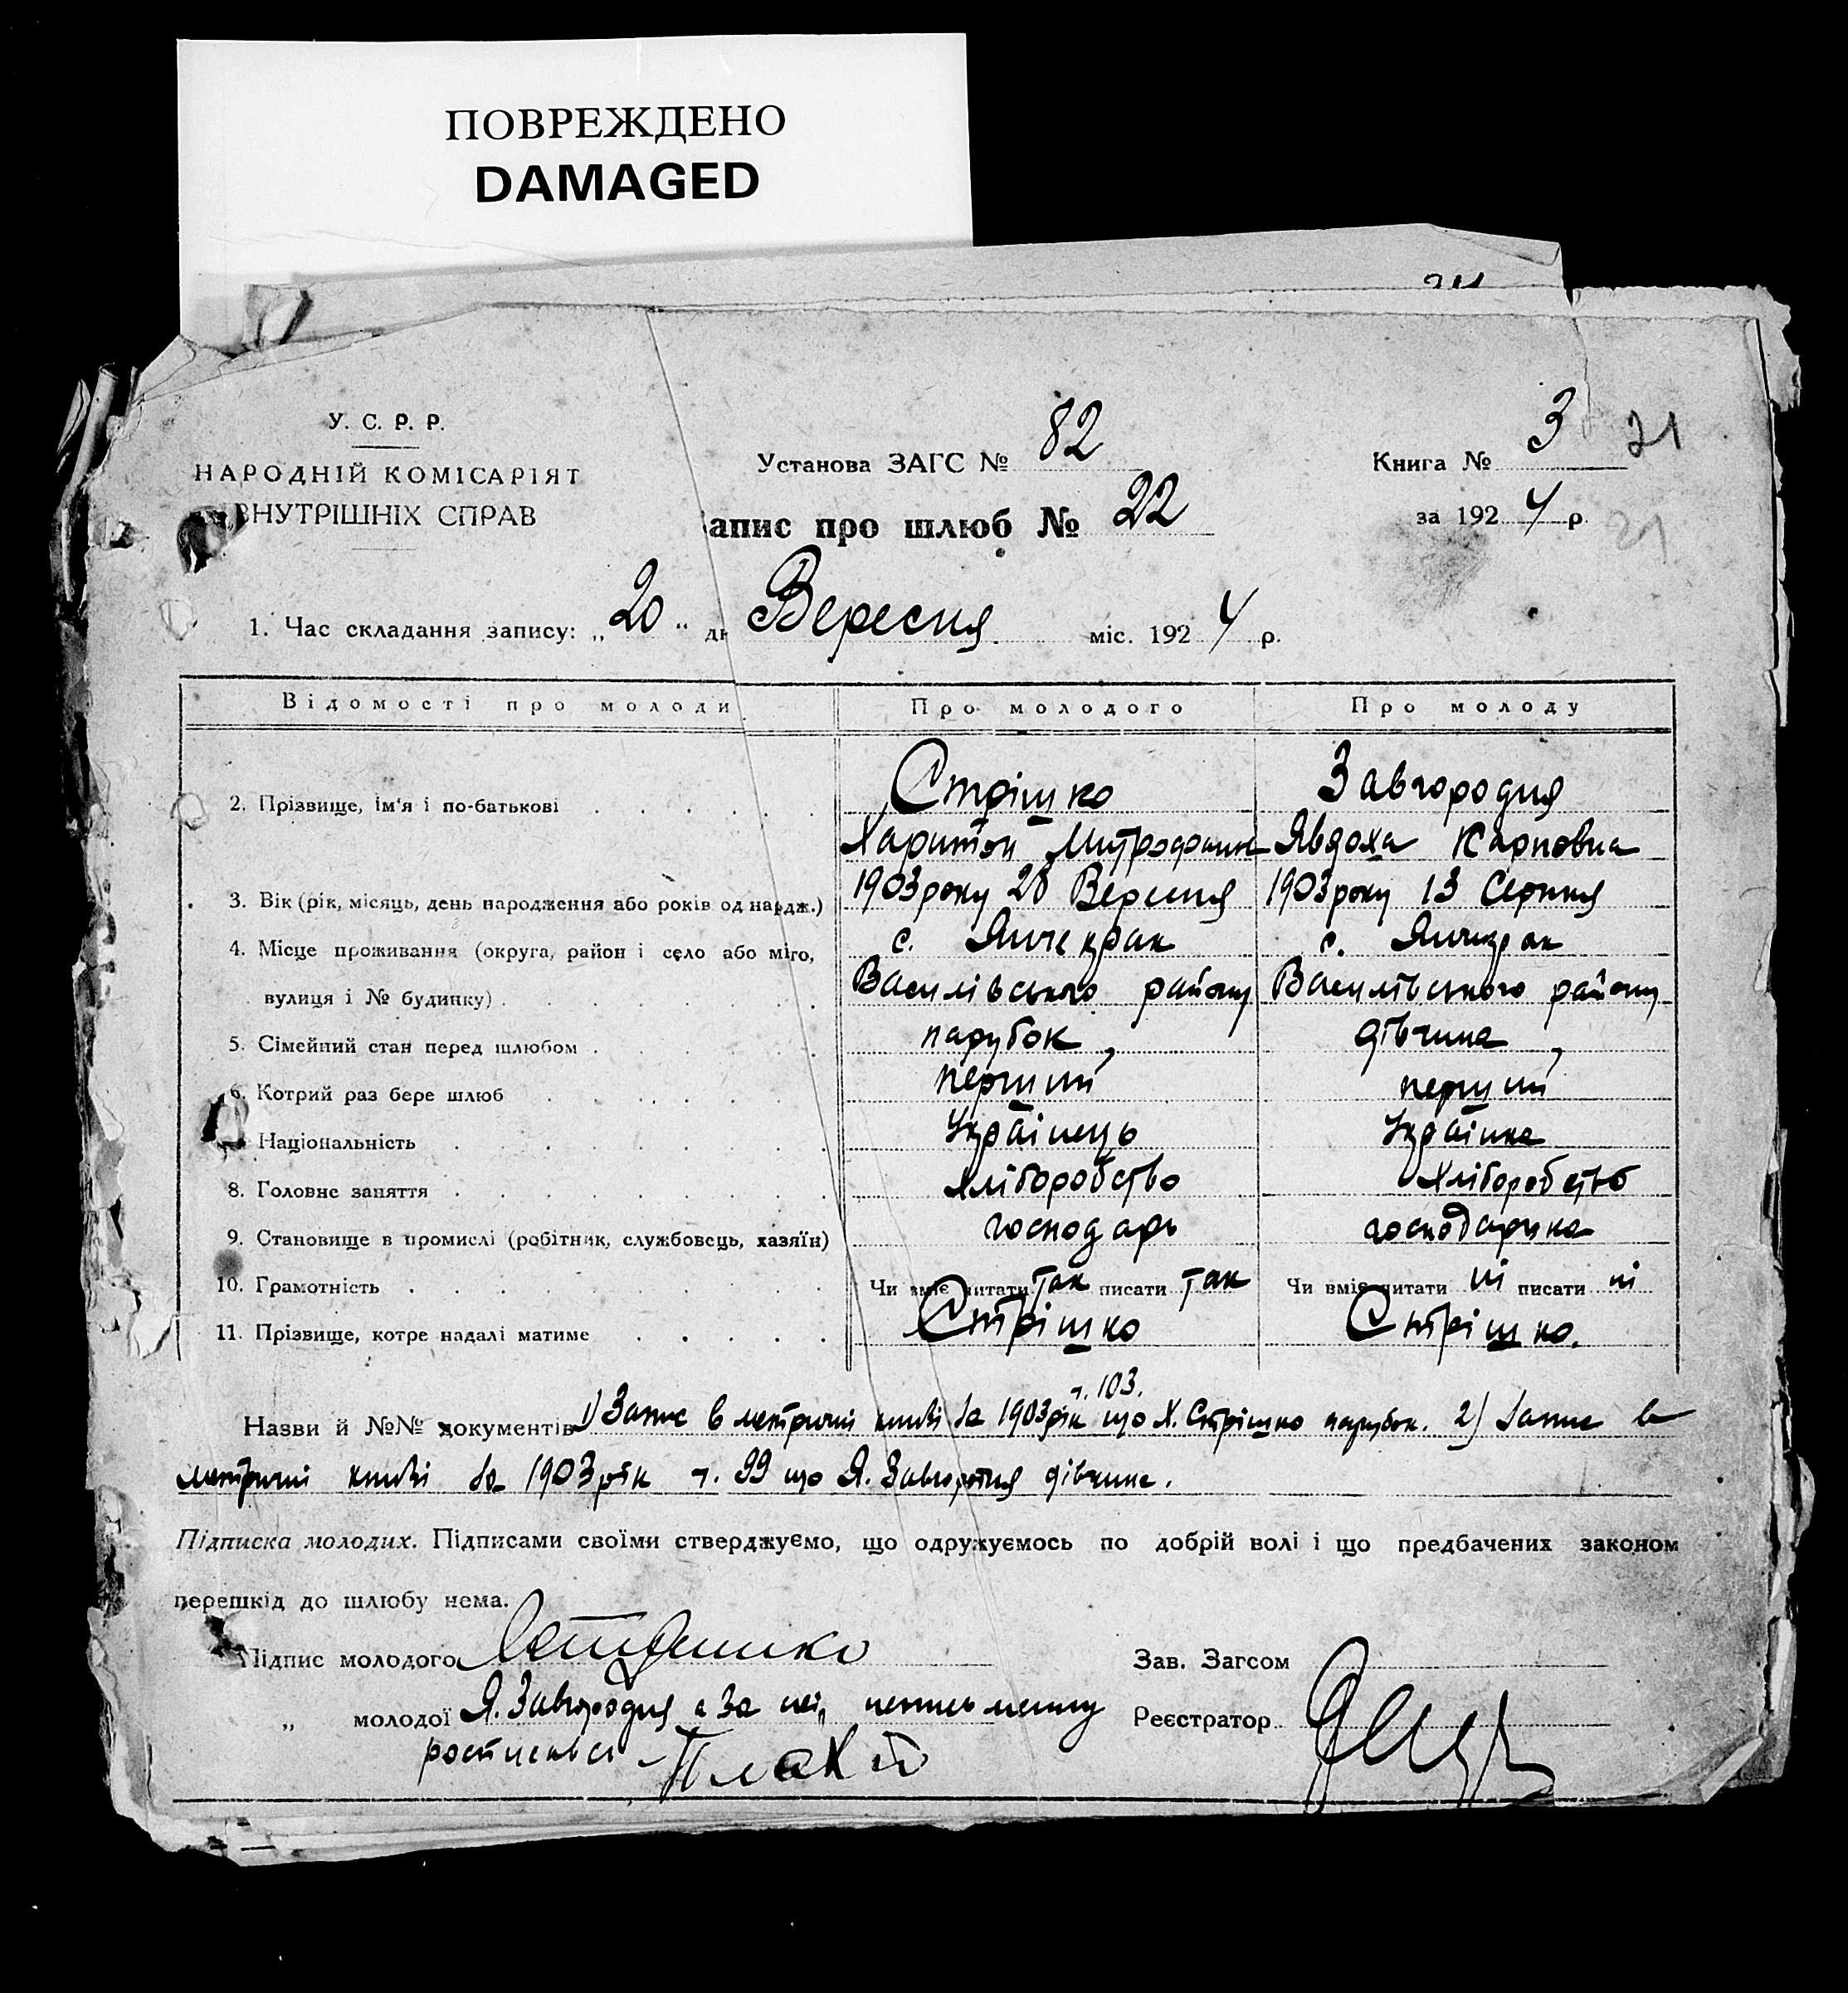 ПОВРЕЖДЕНО
DAMAGED
У. С. Р. Р.
НАРОДНІЙ КОМІСАРІЯТ
ВНУТРІШНІХ СПРАВ
Установа ЗАГС № 82
апис про шлюб № 22
Книга № 3 21
за 1924 р. 21
1. Час складання запису: „20“ дн Вересня міс. 1924 р.
Відомості про молоди Про молодого Про молоду
Стрішко Завгородня
2. Прізвище, ім'я і по-батькові
Харитон Митрофан Явдоха Карповна
3. Вік (рік, місяць, день народження або років од нардж.) 1903 року 28 Вересня 1903 року 13 Серпня
4. Місце проживання (округа, район і село або міго, с. Янчекрак с. Янчекрак
вулиця і № будинку) Василівського району Василівського району
5. Сімейний стан перед шлюбом парубок, дівчина,
6. Котрий раз бере шлюб перший перший
Національність Українець Українка
8. Головне заняття Хліборобство Хліборобство
9. Становище в промислі (робітник, службовець, хазяїн) господарь господарька
10. Грамотність Чи вміє читати так писати так Чи вміє читати ні писати ні
11. Прізвище, котре надалі матиме Стрішко Стрішко.
ч. 103.
Назви й №№ документів 1) Запис в метричні книзі за 1903 рік що Х. Стрішко парубок. 2) Запис в
метричні книзі за 1903 рік ч. 99 що Я. Завгородня дівчина.
Підписка молодих. Підписами своїми стверджуємо, що одружуємось по добрій волі і що предбачених законом
перешкід до шлюбу нема.
Підпис молодого Стришко Зав. Загсом
„ молодої Я. Завгородня а за неї неписьменну Реєстратор
росписався Плохій